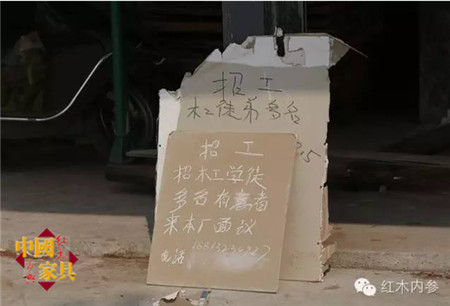 招工
木工徒弟多名
招 工
招木工学徒
多名有意者
来本厂面议
电话
中國
家具
红木内参